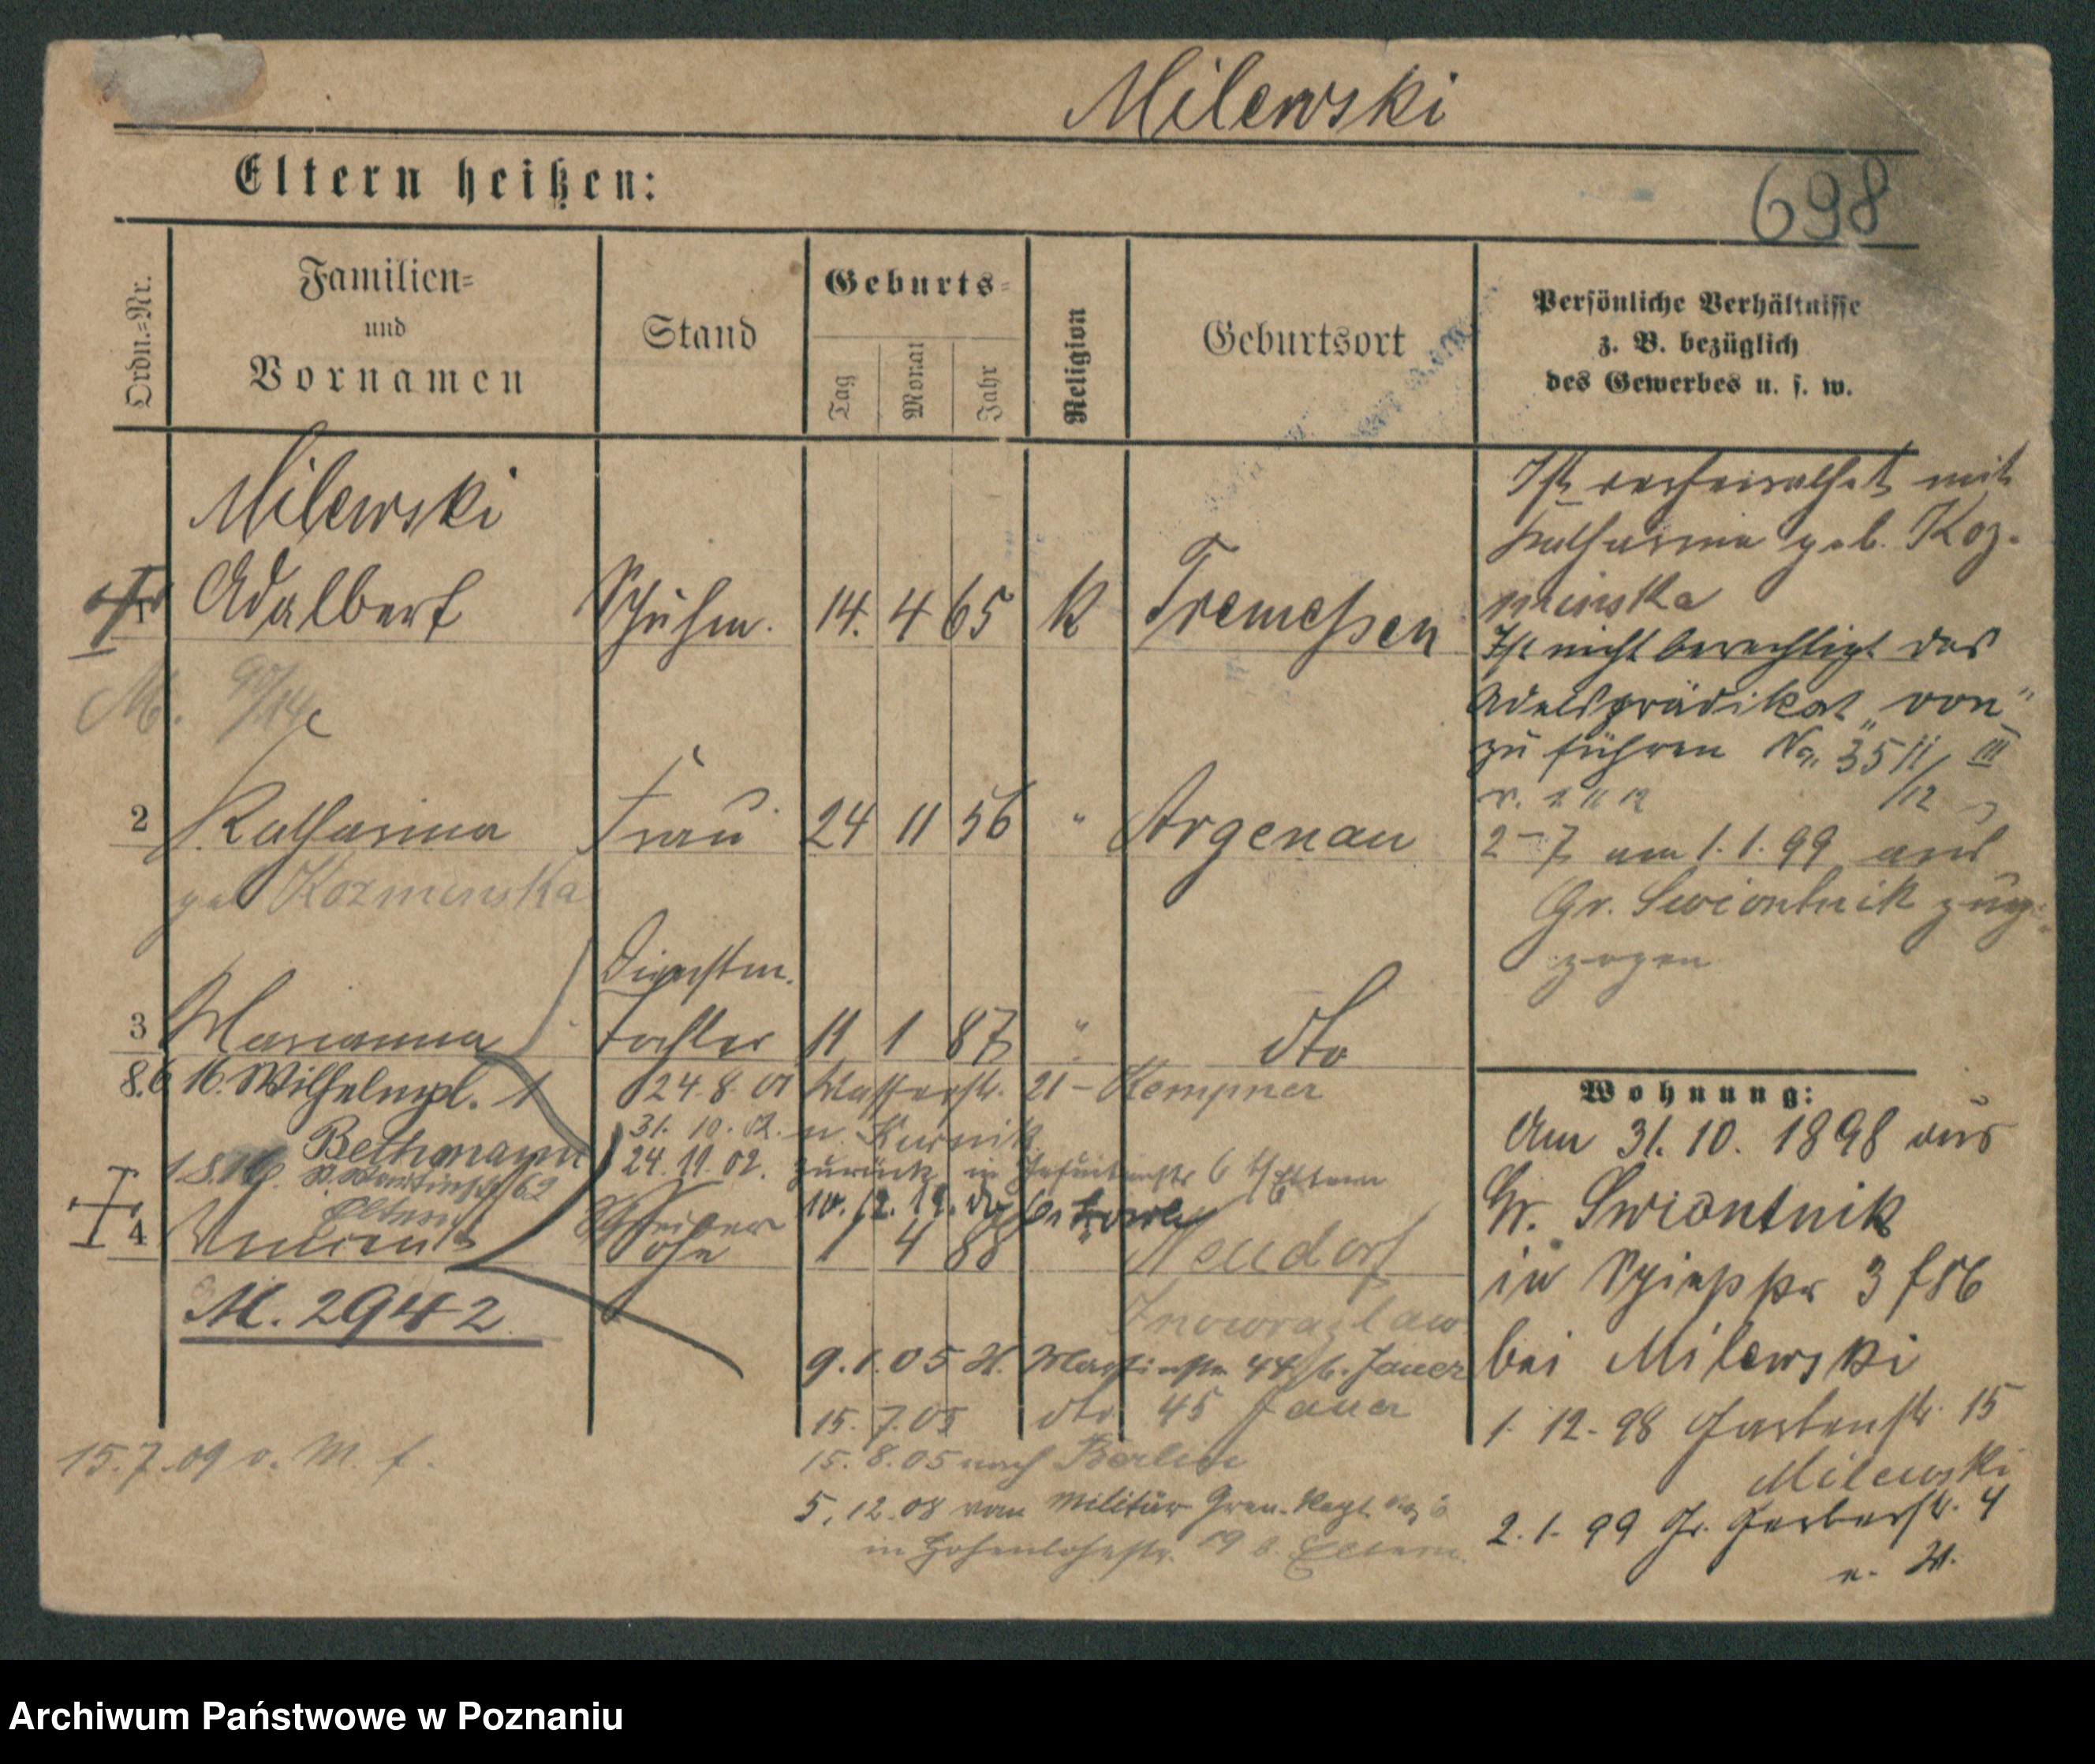 Milewski
Eltern heißen:
698
Ordn.-Nr.
Familien-
und
Vornamen
Stand
Geburts-
Tag
Monat
Jahr
Religion
Geburtsort
Persönliche Verhältnisse
z. B. bezüglich
des Gewerbes u. s. w.
Milewski
1 Adalbert Schuhm. 14. 4 65 K Tremessen
M.
2 Katharina Frau 24 11 56 " Argenau
geb Kozminska
Dienstm.
3 Marianna Tochter 11 1 87 " dto
8.6 16. Wilhelmpl. 1 24.8.01 Wasserstr. 21 - Kempner
Bethmann 31. 10. 02. n. Kurnik
24.11.02. zurück in Jesuitenstr 6 b/Eltern
Eltern
10. 12. 12.
4 Vincent Schreiber Sohn 1 4 88 Neudorf
M. 2942
Inowrazlaw
9.1.05 St. Martinstr. 44 b. Jauer
15.7.05 dto 45 Jauer
15.8.05 nach Berlin
5.12.08 vom Militär Gren. Regt. No 6
in Hohenlohestr. 19 b. Eltern.
15.7.09 v. M. f.
Ist verheirathet mit
Katharina geb. Koz-
minska
Ist nicht berechtigt das
Adelsprädikat „von"
zu führen No. 3511/12 III
2-7 am 1.1.99 aus
Gr. Swiontnik zuge-
zogen
Wohnung:
Am 31. 10. 1898 aus
Gr. Swiontnik
in 3
bei Milewski
1. 12. 98 Gartenstr. 15
Milewski
2. 1. 99 Gr. Gerberstr. 4
Archiwum Państwowe w Poznaniu